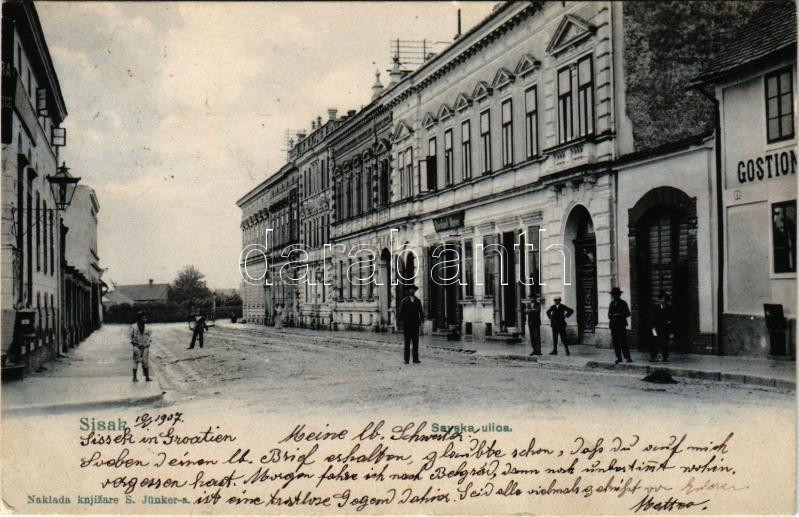 GOSTION
darabanth
Sisak
10/ 1907
Savska ulica.
Sissek in Croatien
Meine lb. Schwester
Soeben deinen lb. Brief erhalten, glaubte schon, daß du auf mich
vergessen hast. Morgen fahre ich nach Belgrad, dann noch unbestimmt wohin,
ist eine trostlose Gegend dahier. Seid alle vielmals gegrüßt von Eurer
Naklada knjižare S. Jünker-a.